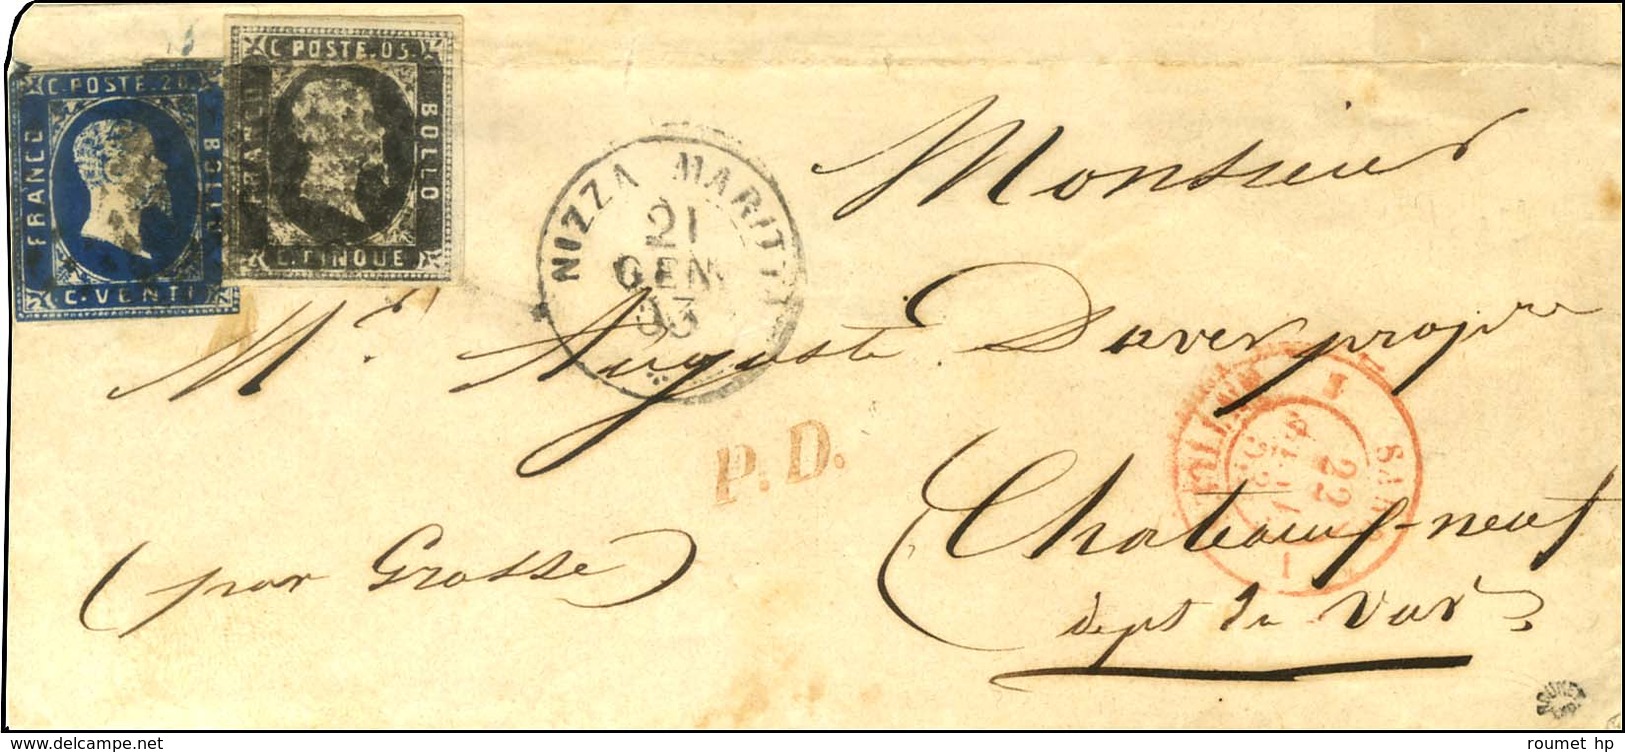 C. POSTE. 20.
FRANCO
BOLLO
C. VENTI
C. POSTE. 05.
FRANCO
BOLLO
C. CINQUE
NIZZA MARITT
21
GEN
53
Monsieur
Mr Auguste Daver propre
P.D.
SARD
22
JANV
53
ANTIBES
Chateauf-neuf
(par Grasse)
dept du Var
ROUMET
Exp.
roumet hp
www.delcampe.net